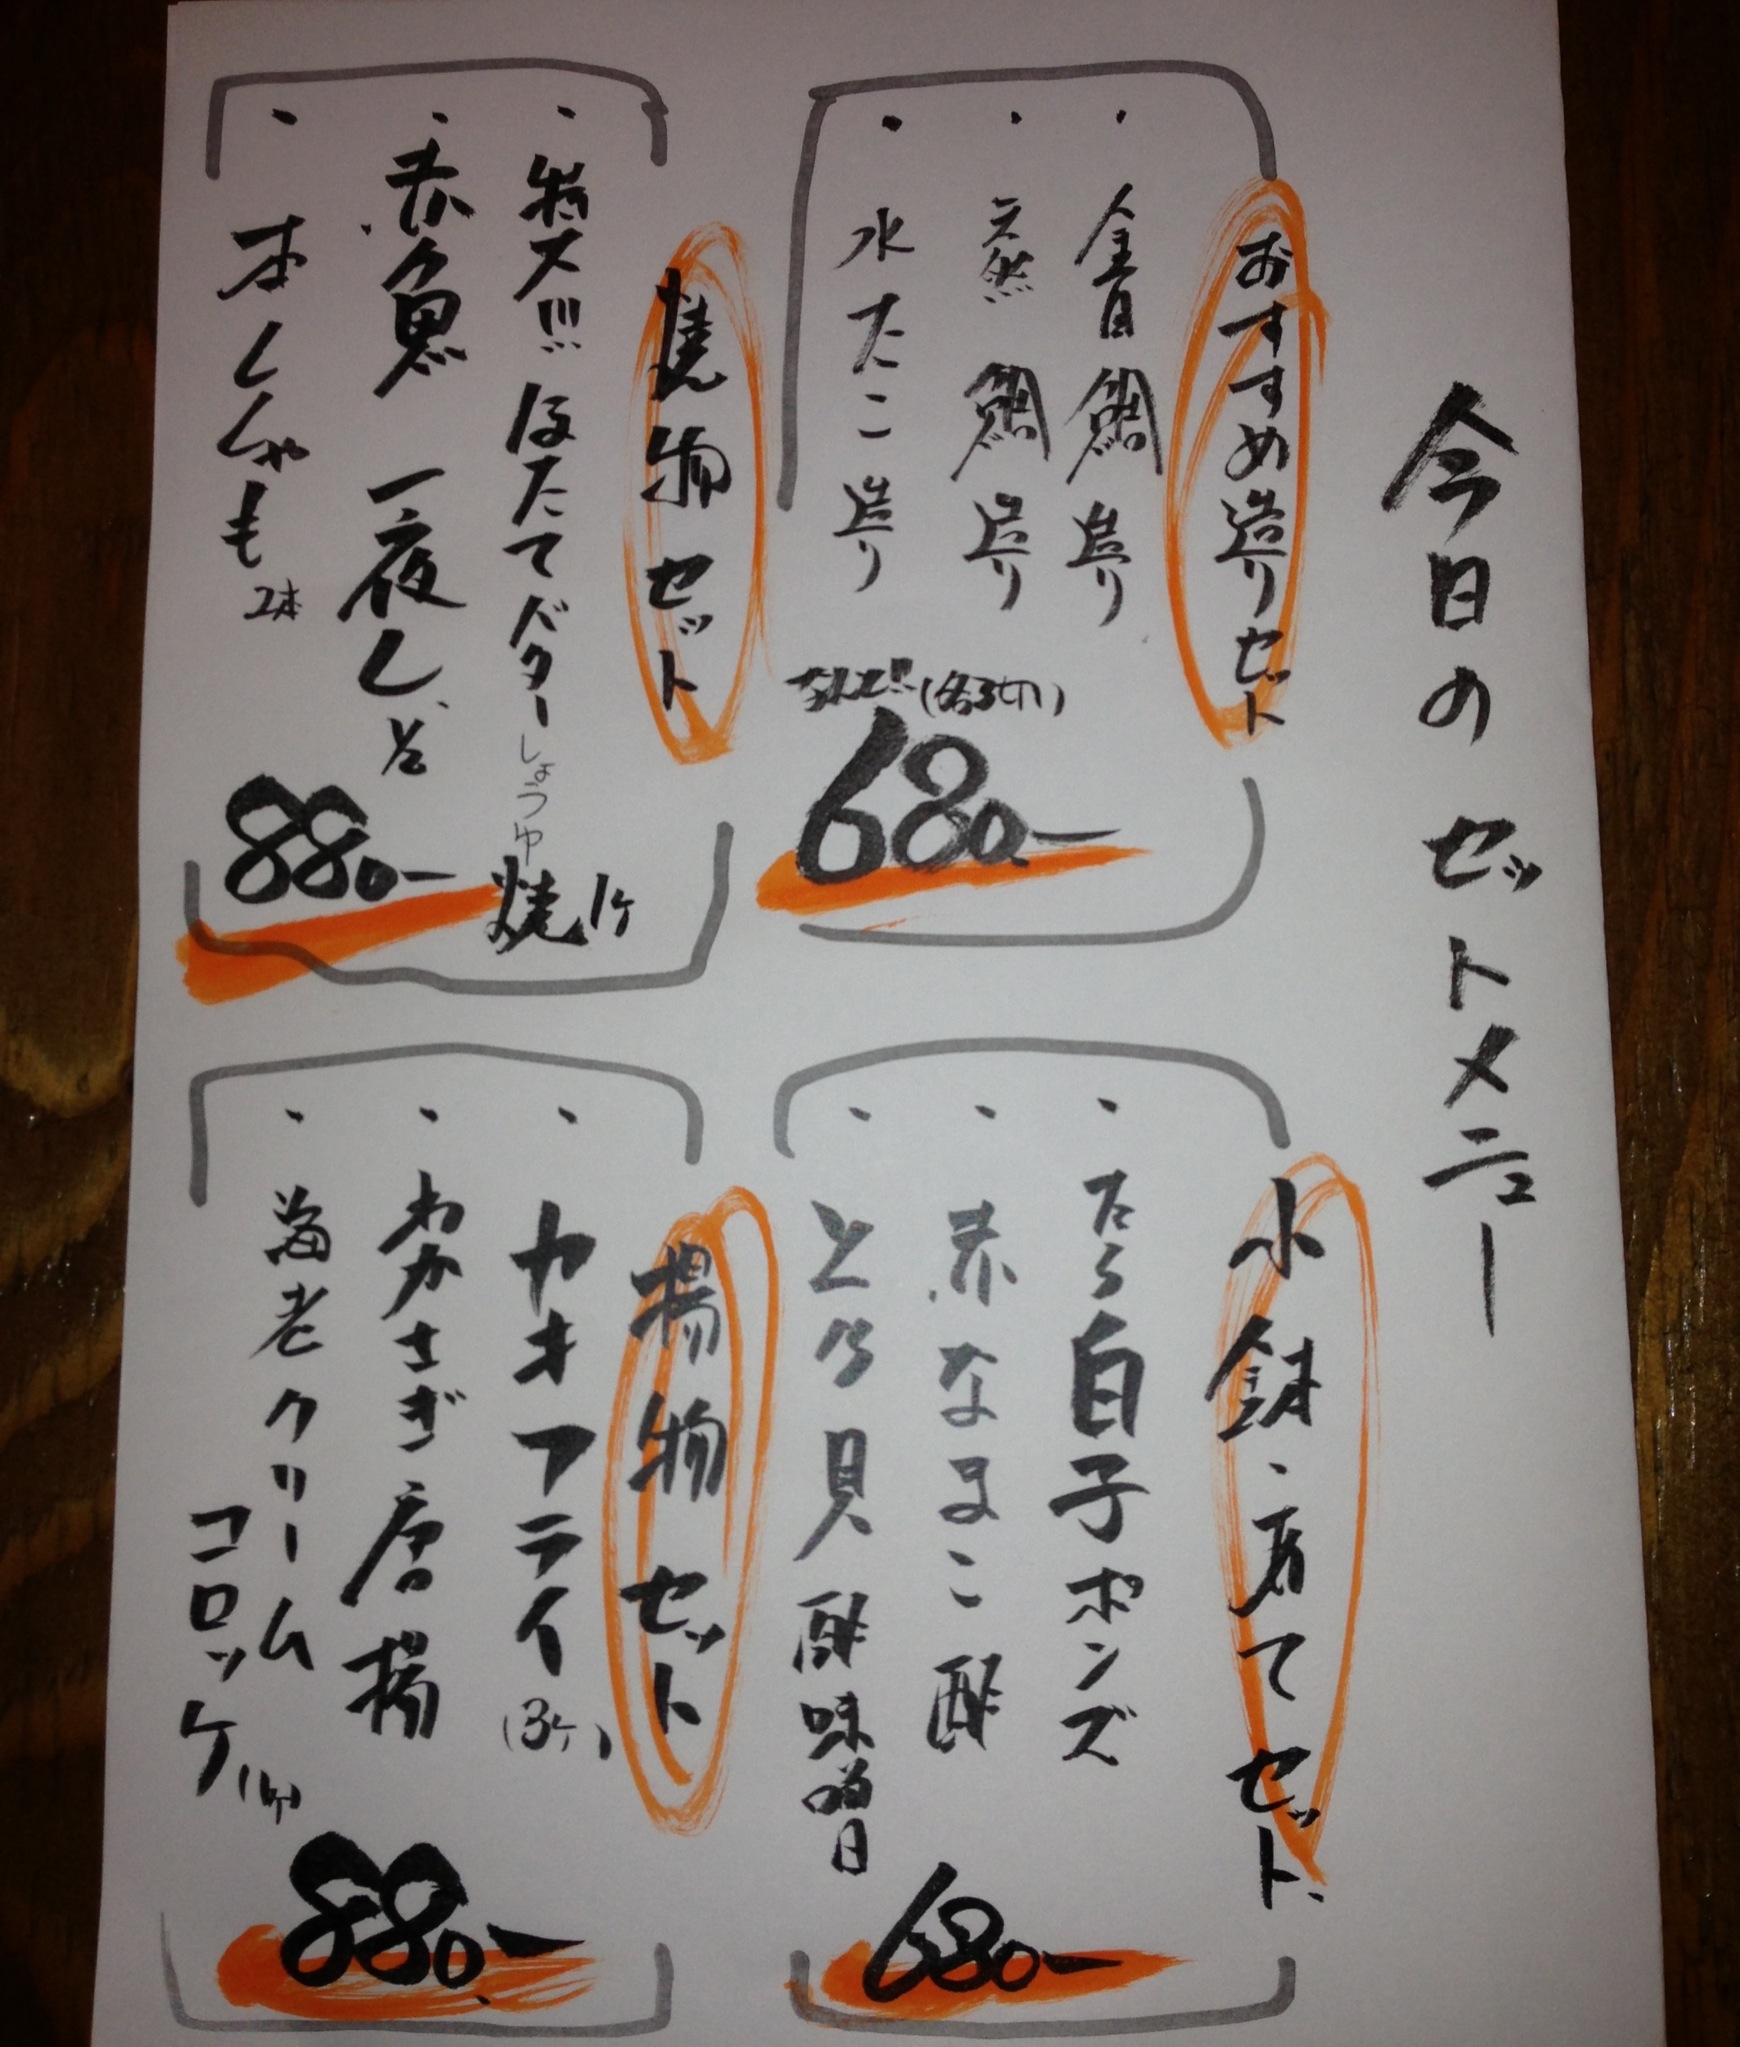 今日のセットメニュー
おすすめ造りセット
・金目鯛造り
・天然鯛造り
・水たこ造り
(各3切)
680-
焼物セット
・特大!!!ほたてバターしょうゆ焼1ケ
・赤魚一夜干し
・本ししゃも2本
880-
小鉢・育てセット
・たら白子ポンズ
・赤なまこ酢
・とり貝酢味噌
680-
揚物セット
・カキフライ(3ケ)
・わかさぎ唐揚
・海老クリーム
コロッケ1ケ
880-